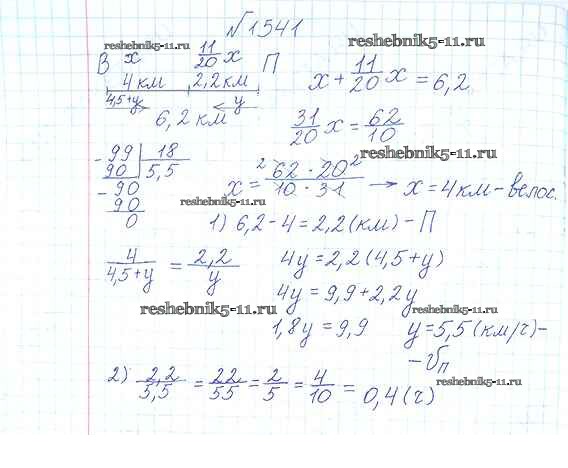 №1541
reshebnik5-11.ru
В x 11/20 x П
4 км 2,2 км
4,5+y y
6,2 км
reshebnik5-11.ru
x + 11/20 x = 6,2
31/20 x = 62/10
reshebnik5-11.ru
99 | 18
90 | 5,5
90
90
0
reshebnik5-11.ru
x = 62 · 20 / 10 · 31 → x = 4 км - велос.
2 2
1) 6,2 - 4 = 2,2 (км) - П
4/4,5+y = 2,2/y
4y = 2,2 (4,5 + y)
4y = 9,9 + 2,2y
reshebnik5-11.ru
reshebnik5-11.ru
1,8y = 9,9 y = 5,5 (км/ч) -
- Vп
2) 2,2/5,5 = 22/55 = 2/5 = 4/10 = 0,4 (ч)
reshebnik5-11.ru
reshebnik5-11.ru